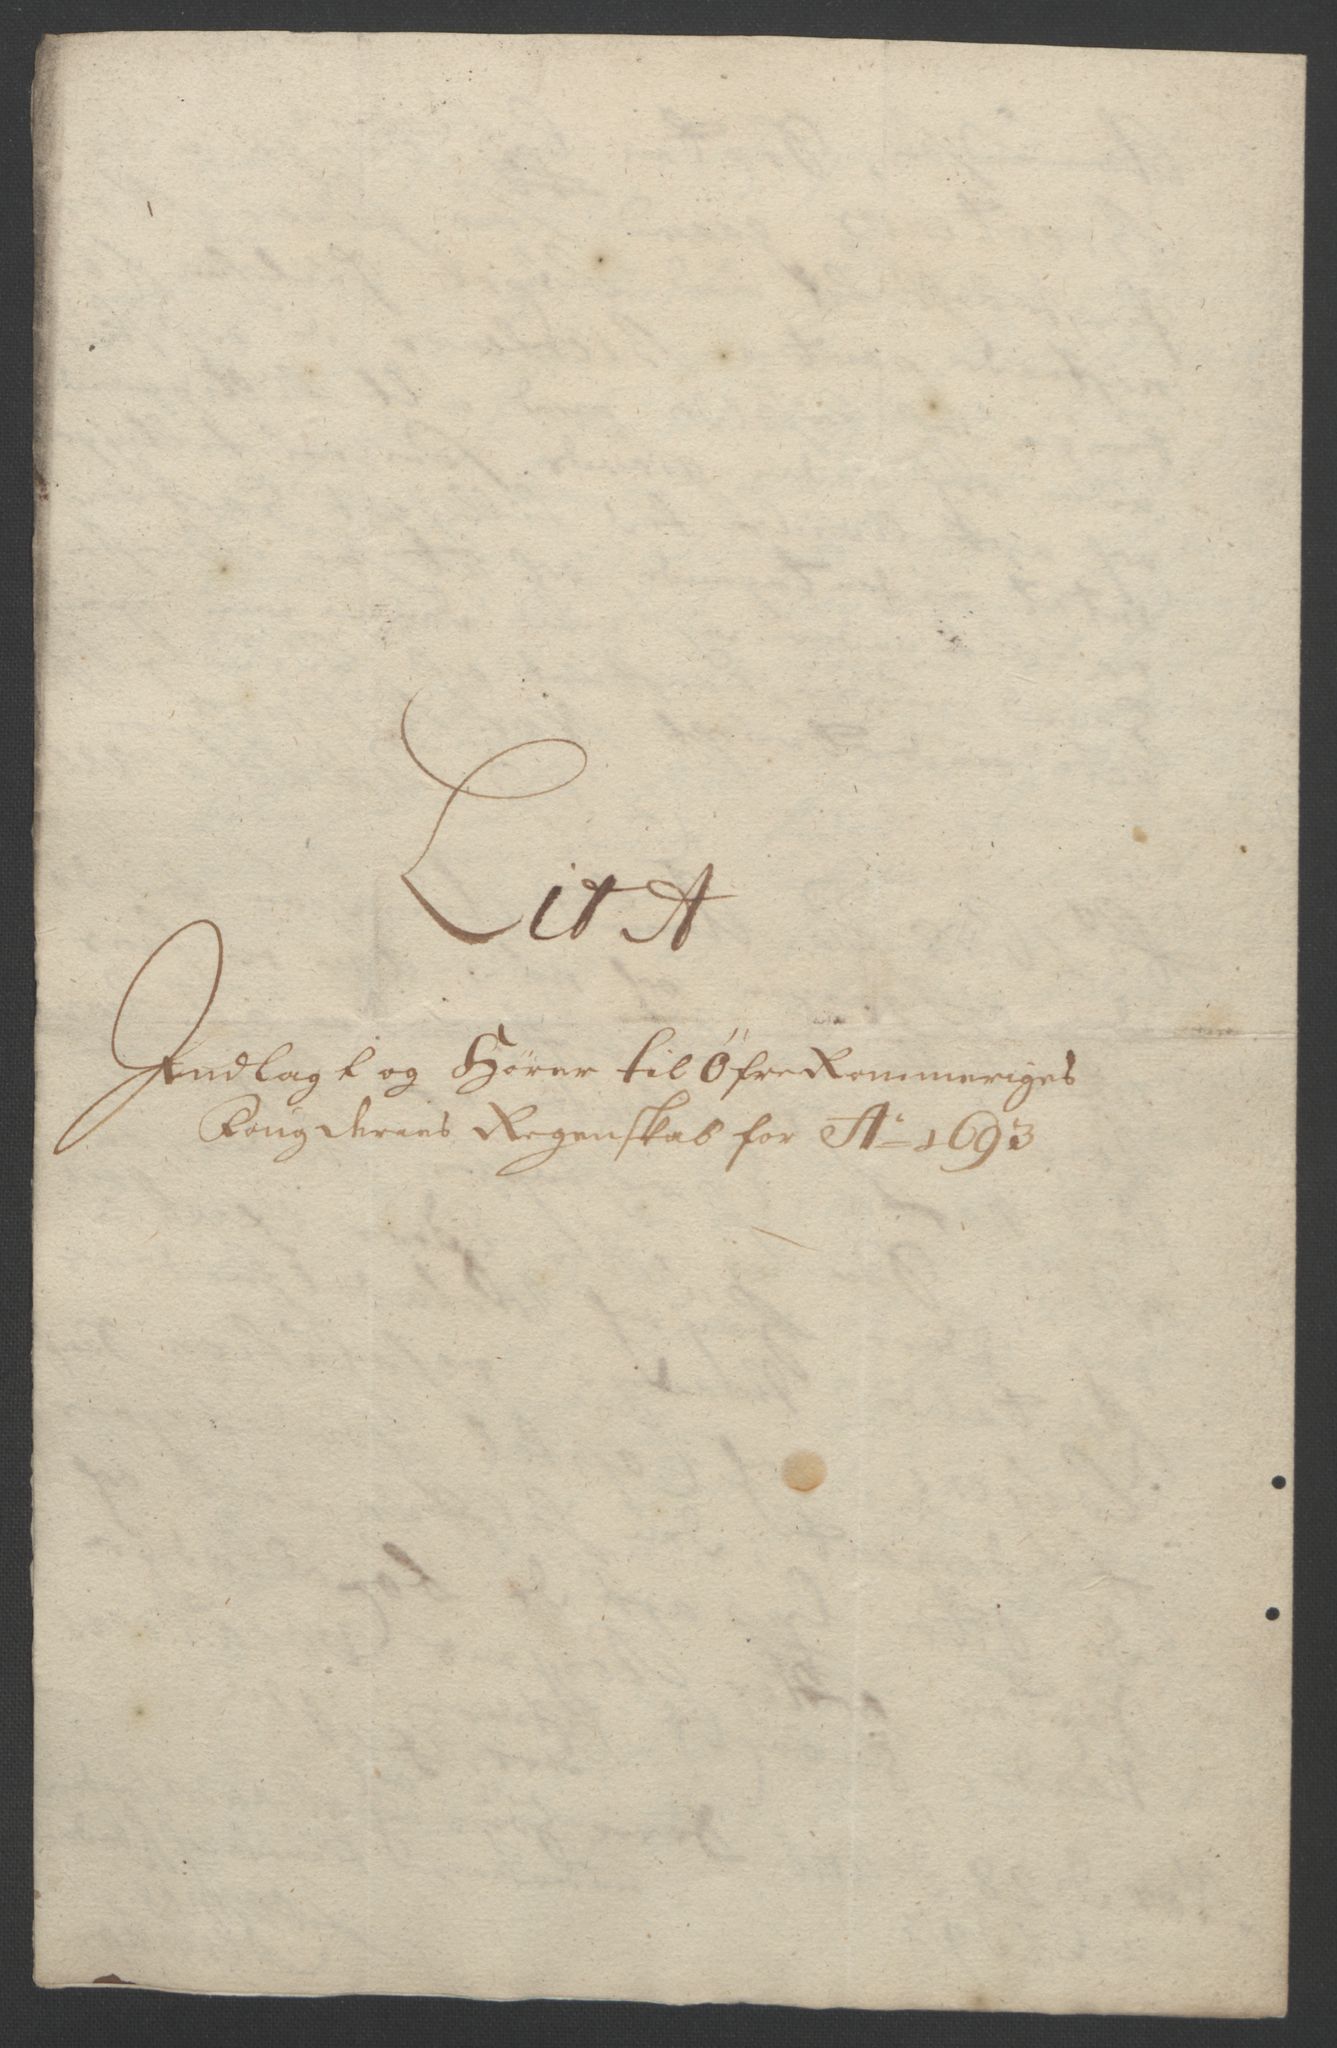 Lit A
Indlagt og Hörer til Öfre Rommeriges
Fougderies Regenskab for Ao 1693